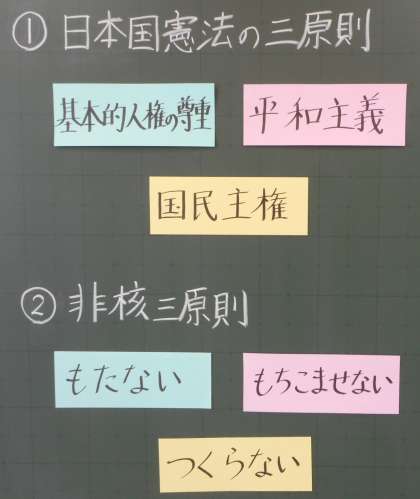 ① 日本国憲法の三原則
基本的人権の尊重
平和主義
国民主権
② 非核三原則
もたない
もちこませない
つくらない